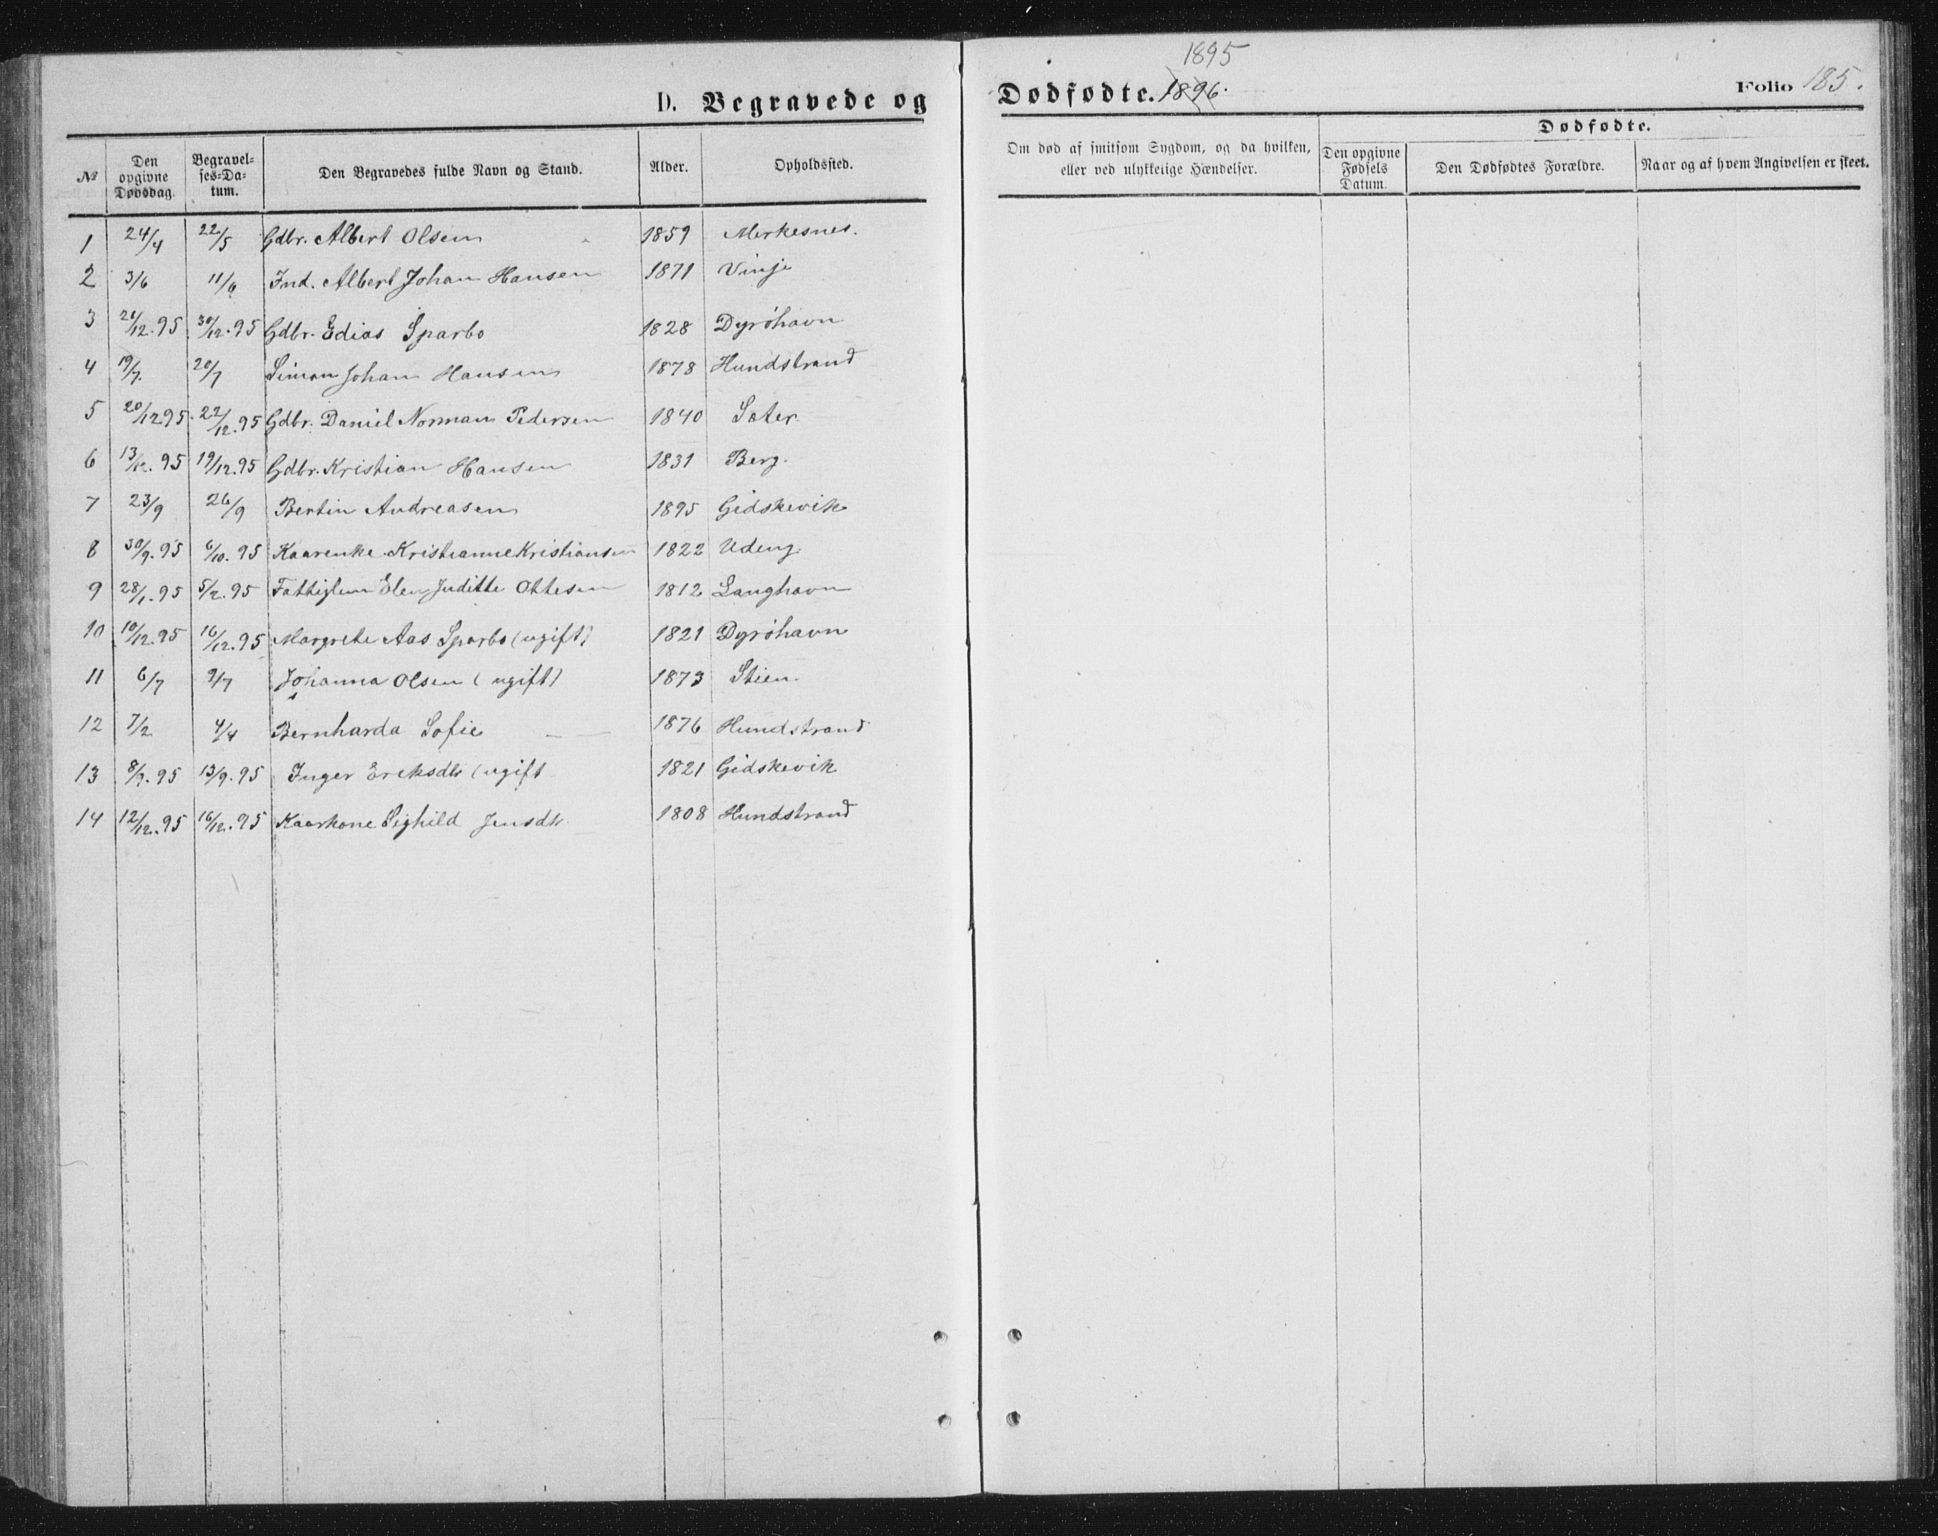 D. Begravede og Dødfødte. 1896.
1895
Folio 185.
№ | Den opgivne Dødsdag. | Begravelses-Datum. | Den Begravedes fulde Navn og Stand. | Alder. | Opholdssted. | Om død af smitsom Sygdom, og da hvilken, eller ved ulykkelige Hændelser. | Dødfødte. | Den opgivne Fødsels Datum. | Den Dødfødtes Forældre. | Naar og af hvem Angivelsen er skeet.
1 24/4 22/5 Gdbr. Albert Olsen 1859 Merkesnes.
2 3/6 11/6 Ind. Albert Johan Hansen 1871 Vinje
3 21/12.95 30/12.95 Gdbr. Edias Sparbo 1828 Dyrøhavn
4 19/7. 20/7 Simon Johan Hansen 1878 Hundstrand
5 20/12 95 22/12.95 Gdbr. Daniel Norman Pedersen 1840 Sæter
6 13/12.95 19/12.95 Gdbr. Kristian Hansen 1831 Berg.
7 23/9 26/9 Bertin Andreasen 1895 Gidskevik
8 30/9.95 6/10.95 Kaarenke Kristianne Kristiansen 1822 Udeng
9 28/1.95 5/2.95 Fattiglem Elen Juditte Ottesen 1812 Langhavn
10 10/12.95 16/12.95 Margrete Aas Sparbo (ugift) 1821 Dyrøhavn
11 6/7 9/7 Johanna Olsen (ugift) 1873 Stien
12 7/2 4/4 Bernharda Sofie — — 1876 Hundstrand
13 8/9.95 13/9.95 Inger Eriksdtr (ugift 1821 Gidskevik
14 12/12.95 16/12.95 Kaarkone Sighild Jensdtr 1808 Hundstrand